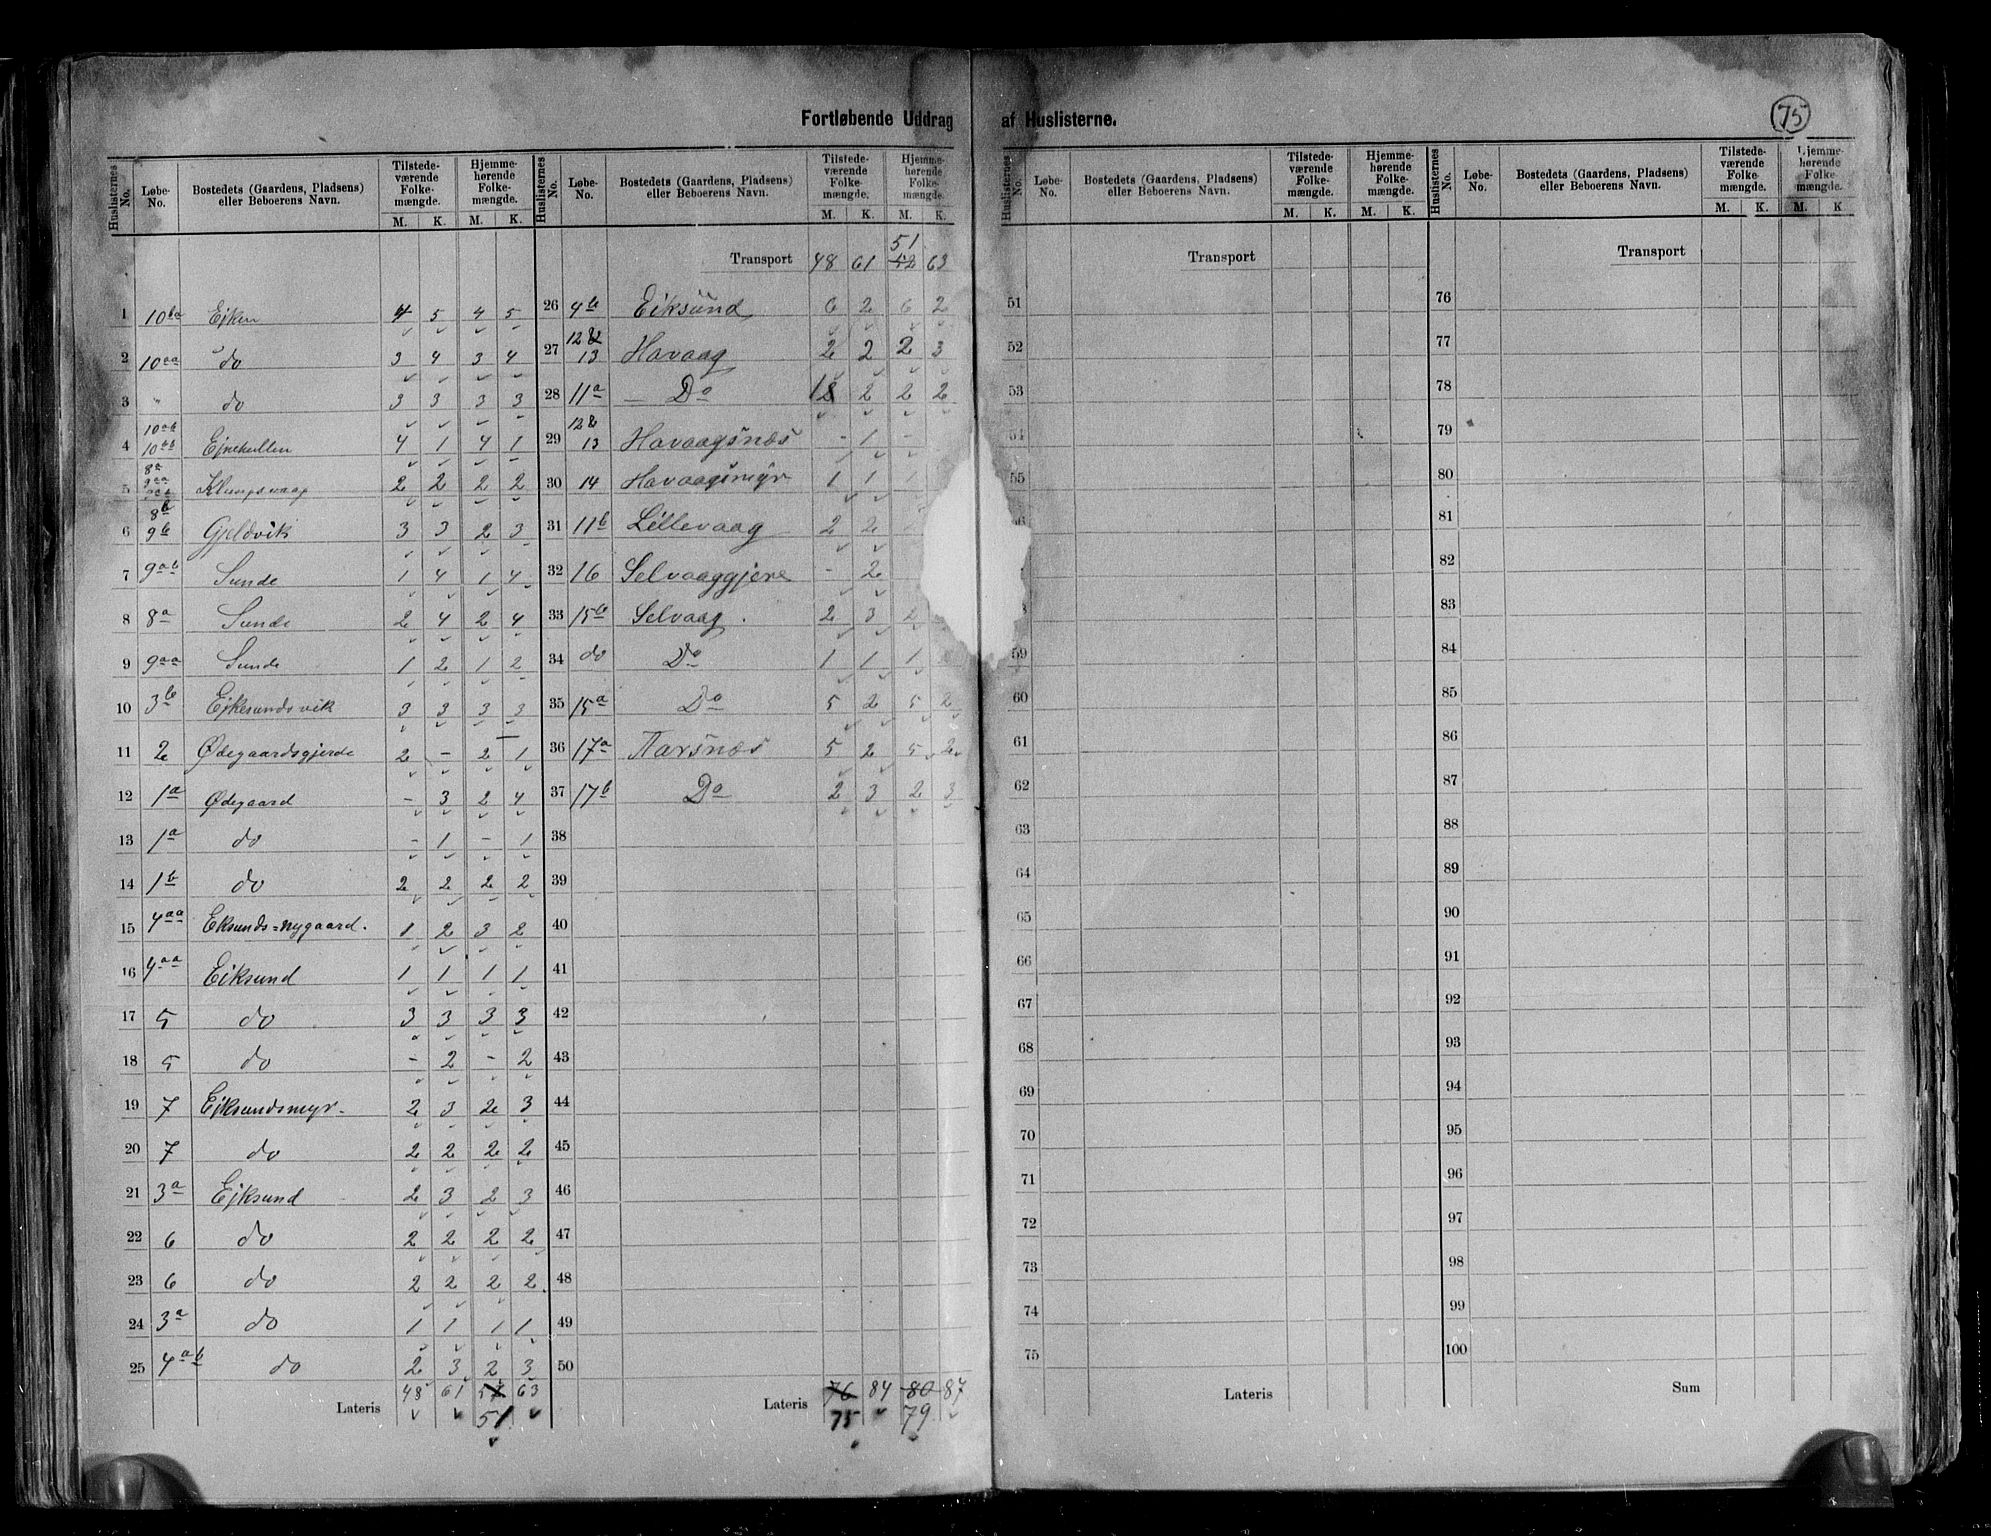 Fortløbende Uddrag af Huslisterne.
75
Huslisternes No. | Løbe-No. | Bostedets (Gaardens, Pladsens) eller Beboerens Navn. | Tilstede-værende Folke-mængde. M. K. | Hjemme-hørende Folke-mængde. M. K.
1 10ba Ejken 4 5 4 5
2 10aa do 3 4 3 4
3 " do 3 3 3 3
4 10ab 10bb Ejnekullen 4 1 4 1
5 8a 9aa Klungsvaag 2 2 2 2
6 8b 9b Gjeldvik 3 3 2 3
7 9ab Sunde 1 4 1 4
8 8a Sunde 2 4 2 4
9 9aa Sunde 1 2 1 2
10 3b Ejkesundsvik 3 3 3 3
11 2 Ødegaardsgjerde 2 - 2 1
12 1a Ødegaard - 3 2 4
13 1a do - 1 - 1
14 1b do 2 2 2 2
15 4aa Eksunds=nygaard. 1 2 3 2
16 4aa Eiksund 1 1 1 1
17 5 do 3 3 3 3
18 5 do - 2 - 2
19 7 Ejksundsmyr. 2 3 2 3
20 7 do 2 2 2 2
21 3a Ejksund 2 3 2 3
22 6 do 2 2 2 2
23 6 do 2 2 2 2
24 3a do 1 1 1 1
25 4ab do 2 3 2 3
Lateris 48 61 63
51
Huslisternes No. | Løbe-No. | Bostedets (Gaardens, Pladsens) eller Beboerens Navn. | Tilstede-værende Folke-mængde. M. K. | Hjemme-hørende Folke-mængde. M. K.
51
Transport 48 61 52 63
26 4b Eiksund 6 2 6 2
27 12 & 13 Havaag 2 2 2 3
28 11a — Do 2 2 2
29 12 & 13 Havaagsnæs - 1 -
30 14 Havaagsmyr 1 1 1
31 11b Lillevaag 2 2
32 16 Selvaaggjere - 2
33 15b Selvaag. 2 3 2
34 do Do 1 1 1
35 15a Do 5 2 5 2
36 17a Aarsnæs 5 2 5 2
37 17b Do 2 3 2 3
38
39
40
41
42
43
44
45
46
47
48
49
50
Lateris 76 84 80 87
75 79
Huslisternes No. | Løbe-No. | Bostedets (Gaardens, Pladsens) eller Beboerens Navn. | Tilstede-værende Folke-mængde. M. K. | Hjemme-hørende Folke-mængde. M. K.
Transport
51
52
53
54
55
59
60
61
62
63
64
65
66
67
68
69
70
71
72
73
74
75
Lateris
Huslisternes No. | Løbe-No. | Bostedets (Gaardens, Pladsens) eller Beboerens Navn. | Tilstede-værende Folke-mængde. M. K. | Hjemme-hørende Folke-mængde. M. K
Transport
76
77
78
79
80
81
82
83
84
85
86
87
88
89
90
91
92
93
94
95
96
97
98
99
100
Sum